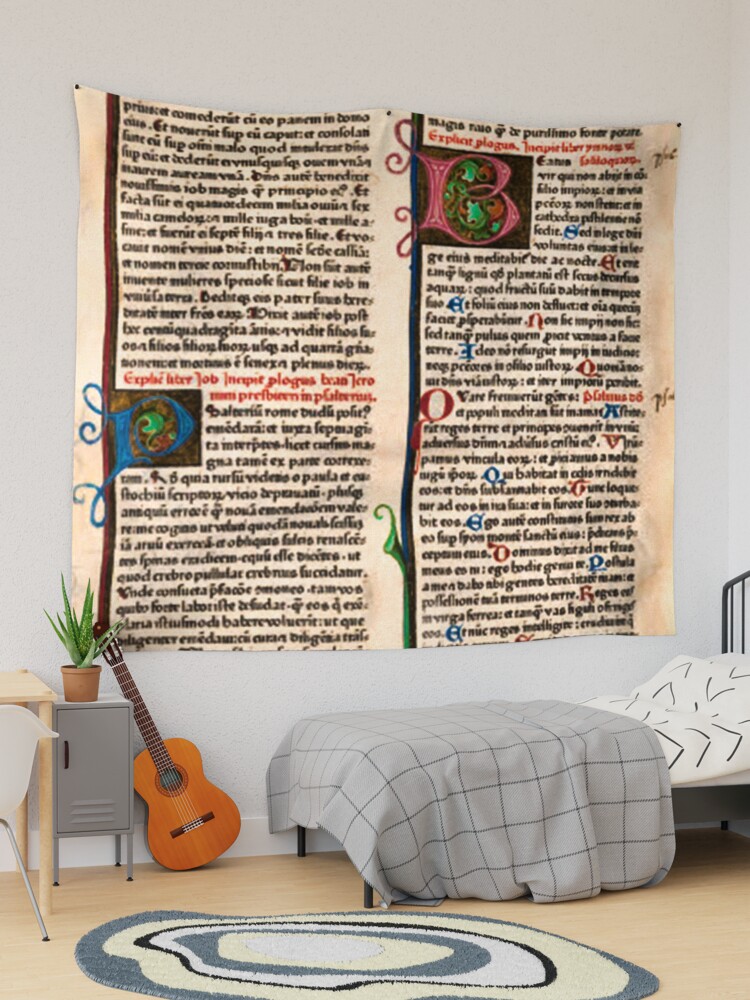 prius: et comederūt cū eo panem in domo
eius. Et moverūt sup eū caput: et consolati
sunt eū sup om̄i malo quod
sup eū: et dederūt ei vnusquisq; ouem vnā
inaurem auream vnā. Dn̄s aūt benedixit
nouissimis iob magis q̄ principio eȝ. Et
facta sūt ei quatuordecim milia ouiū sex
milia cameloꝝ mille iuga boū: et mille a-
sine: et fuerūt ei septē filij tres filie. Et vo-
cauit nomē vnius diē: et nomē scd̄e cassiā:
et nomen tercie cornustibij. Non sūt aūt
inuente mulieres speciose sicut filie iob in
vniūsa terra. Deditq; eis pater suus here-
ditatē inter fr̄es eaꝝ. Vixit aūt iob post
hec centū quadragīta ānis: vidit filios su-
os filios filioꝝ suoꝝ usq; ad quartā
nonem: et mortuus ē senex plenus dieꝝ.
Explic̄ liber Job Incipit plogus beati Jero
nimi presbiteri in psalterium.
Psalteriū rome dudū posit
emēdarā: et iuxta septuagī
ta interp̄tes. licet cursim ma-
gna tamē ex parte correxe-
ram. qua rursū videtis o paula et eu-
stochiū scriptoꝝ vicio deprauatū. plusq;
antiquū errorē q̄ nouā emendacōem vale-
re: me cogitis ut velut quodā nouali scissū
iā aruū exerceā. et obliquis sulcis renascen
tes spinas eradicem. equū esse dicētes. ut
quod crebro pullulat crebrius succidatur.
Vnde consueta p̄facōe ōmoneo. tam vos
quibo forte labor iste desudat. q̄ eos q̄ exē-
plaria istiusmodi habere voluerit: ut que
diligenter emēdaui: cū cura diligētia trās-
magis riuo q̄ de purissimo fonte potare.
Explicit plogus. Incipit liber
soliloquoꝝ.
Beatus
vir qui non abijt in cō-
silio impioꝝ: et in via
pccōꝝ non stetit: et in
cathedra pestilentie nō
sedit. Sed in lege dn̄i
voluntas eius: et in le-
ge eius meditabit̄ die ac nocte. Et erit
tanq̄ lignū qd̄ plantatū est secus decursus
aquaꝝ: quod fructū suū dabit in tempore
suo. Et foliū eius non defluet: et oīa quecūq;
faciet psperabūtur. Non sic impij non sic:
sed tanq̄ puluis quem picit ventus a facie
terre. Ideo nō resurgūt impij in iudicio:
neq; pccōres in cōsilio iustoꝝ. Quoniā no-
uit dn̄s viā iustoꝝ: et iter impioꝝ peribit.
Quare fremuerūt gētes:
et populi meditati sūt inania. Astite-
rūt reges terre et principes cōuenerūt in vnū:
aduersus dn̄m aduersus cristū eȝ. Dirū-
pamus vincula eoꝝ: et piciamus a nobis
iugū ip̄oꝝ. Qui habitat in celis irridebit
eos: et dn̄s subsannabit eos. Tunc loque-
tur ad eos in ira sua: et in furore suo oturba-
bit eos. Ego autē constitutus sum rex ab
eo sup syon montē sanctū eius: pdicās p̄-
ceptum eius. Dominus dixit ad me filius
meus es tu: ego hodie genui te. Postula
a me dabo tibi gentes hereditatē tuam: et
possessionē tuā terminos terre. Reges eos
in virga ferrea: et tanq̄ vas figuli ofringes
eos. Et nūc reges intelligite: erudimini q̄